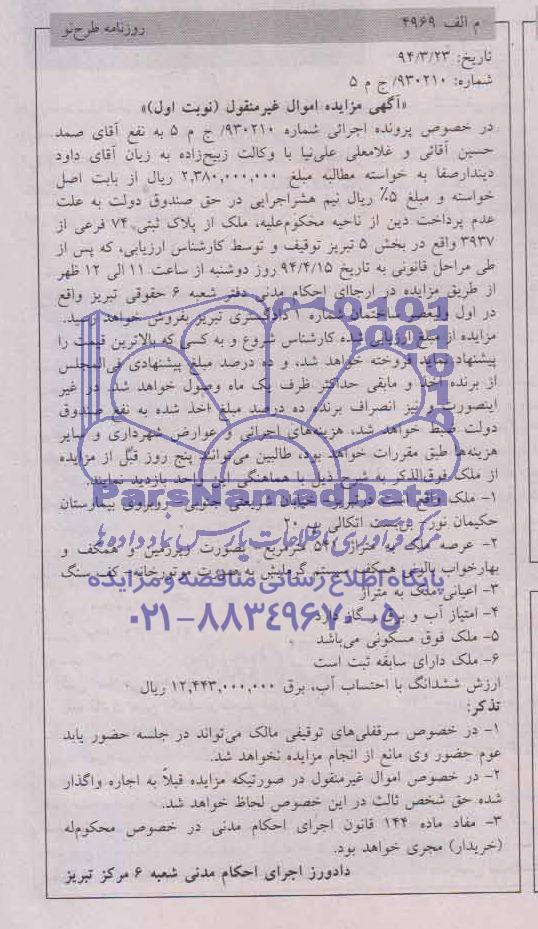 م الف ۴۹۶۹
روزنامه طرح‌نو
تاریخ: ۹۴/۳/۲۳
شماره: ۹۳۰۲۱۰/ ج م ۵
«آگهی مزایده اموال غیرمنقول (نوبت اول)»
در خصوص پرونده اجرائی شماره ۹۳۰۲۱۰/ ج م ۵ به نفع آقای صمد
حسین آقائی و غلامعلی علی‌نیا با وکالت زبیح‌زاده به زیان آقای داود
دیندارصفا به خواسته مطالبه مبلغ ۲,۳۸۰,۰۰۰,۰۰۰ ریال از بابت اصل
خواسته و مبلغ ۵٪ ریال نیم هشراجرایی در حق صندوق دولت به علت
عدم پرداخت دین از ناحیه محکوم‌علیه، ملک از پلاک ثبتی ۷۴ فرعی از
۳۹۳۷ واقع در بخش ۵ تبریز توقیف و توسط کارشناس ارزیابی، که پس از
طی مراحل قانونی به تاریخ ۹۴/۴/۱۵ روز دوشنبه از ساعت ۱۱ الی ۱۲ ظهر
از طریق مزایده در ارجاای احکام مدنی دفتر شعبه ۶ حقوقی تبریز واقع
در اول ولیعصر ساختمان شماره ۱ دادگستری تبریز بفروش خواهد رسید.
مزایده از مبلغ ارزیابی شده کارشناس شروع و به کسی که بالاترین قیمت را
پیشنهاد نماید فروخته خواهد شد، و ده درصد مبلغ پیشنهادی فی‌المجلس
از برنده اخذ و مابقی حداکثر ظرف یک ماه وصول خواهد شد. در غیر
اینصورت و نیز انصراف برنده ده درصد مبلغ اخذ شده به نفع صندوق
دولت ضبط خواهد شد، هزینه‌های اجرائی و عوارض شهرداری و سایر
هزینه‌ها طبق مقررات خواهد بود، طالبین می‌توانند پنج روز قبل از مزایده
از ملک فوق‌الذکر به شرح ذیل با هماهنگی این واحد بازدید نمایند.
۱- ملک واقع است در تبریز- خیابان شریعتی جنوبی- روبروی بیمارستان
حکیمان نور- بن‌بست اتکالی- پ ۲۰
۲- عرصه ملک به متراژ مترمربع بصورت زیرزمین و همکف و
بهارخواب بالای همکف سیستم گرمایش به صورت موتورخانه- کف سنگ
۳- اعیانی ملک به متراژ
۴- امتیاز آب و برق و گاز دارد
۵- ملک فوق مسکونی می‌باشد
۶- ملک دارای سابقه ثبت است
ارزش ششدانگ با احتساب آب، برق ۱۲,۴۴۳,۰۰۰,۰۰۰ ریال
تذکر:
۱- در خصوص سرقفلی‌های توقیفی مالک می‌تواند در جلسه حضور یابد
عوم حضور وی مانع از انجام مزایده نخواهد شد.
۲- در خصوص اموال غیرمنقول در صورتیکه مزایده قبلاً به اجاره واگذار
شده حق شخص ثالث در این خصوص لحاظ خواهد شد.
۳- مفاد ماده ۱۴۴ قانون اجرای احکام مدنی در خصوص محکوم‌له
(خریدار) مجری خواهد بود.
دادورز اجرای احکام مدنی شعبه ۶ مرکز تبریز
ParsNamadData
مرکز فرآوری اطلاعات پارس نماد داده‌ها
پایگاه اطلاع رسانی مناقصه و مزایده
۰۲۱-۸۸۳۴۹۶۷۰-۵